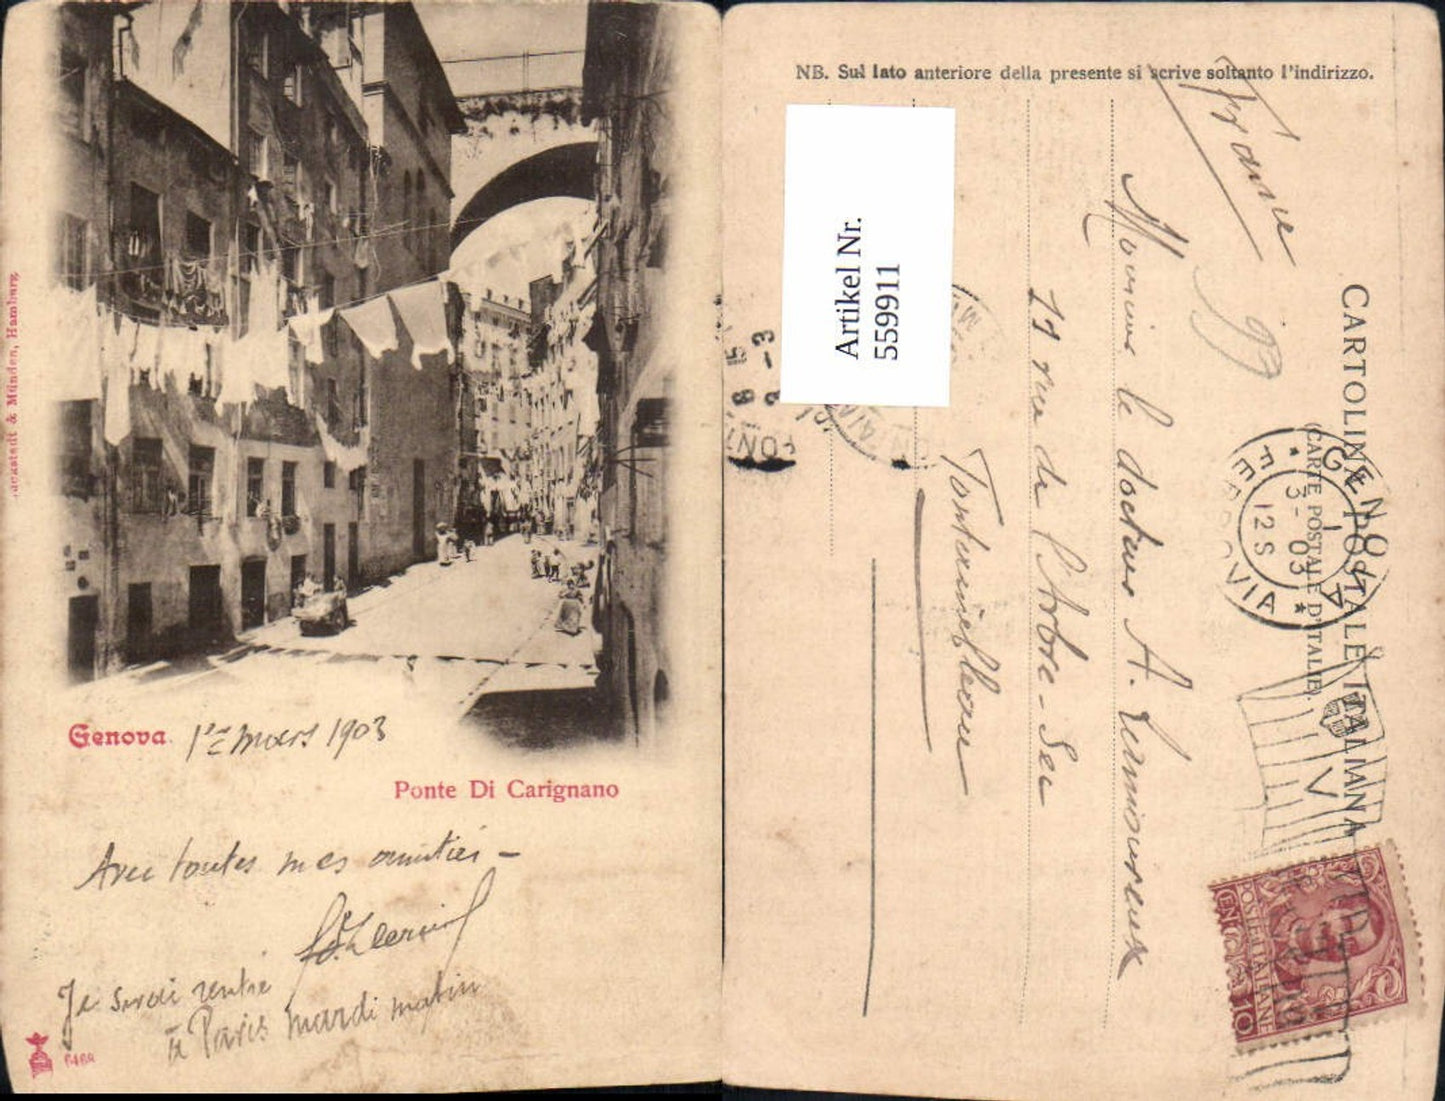 Genova. 1er mars 1903
Ponte Di Carignano
Avec toutes mes amitiés –
Je serai rentré
à Paris mardi matin
& Münden, Hamburg.
NB. Sul lato anteriore della presente si scrive soltanto l'indirizzo.
CARTOLINA POSTALE ITALIANA
(CARTE POSTALE D'ITALIE).
Artikel Nr.
559911
France
Monsieur le docteur A.
11 rue de l'Arbre-Sec
Fontainebleau
GENOVA
FERROVIA
1-
3-03
12 S
POSTE ITALIANE
CENT. 10